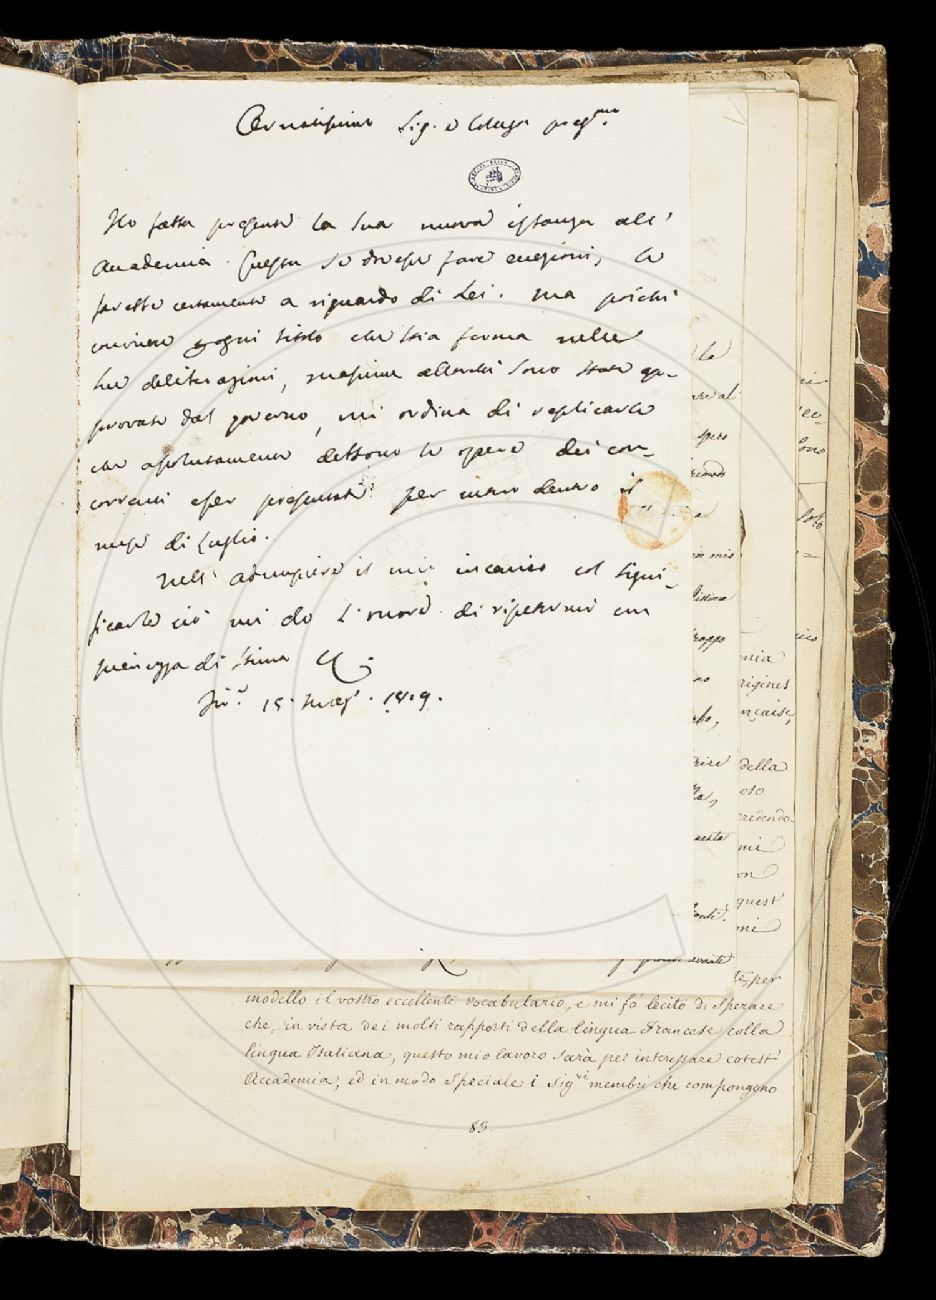 Ornatissimo Sig. e Collega preg.mo
Ho fatta presente la sua nuova istanza all'
Accademia. Questa se dovesse fare eccezioni, le
farebbe certamente a riguardo di Lei. Ma poichè
conviene ogni titolo che stia ferma nelle
sue deliberazioni, massime allorchè sono state ap-
provate dal governo, mi ordina di replicarle
che assolutamente debbono le opere dei con-
correnti esser presentate per entro il
mese di Luglio.
Nell' adempiere il mio incarico col signi-
ficarle ciò mi do l'onore di ripetermi con
pienezza di stima &c.
15. Mag. 1819.
la
al
spero
in mio
troppo
no
nia
rigines
nçaise,
della
oso
credendo
mi
on
quest'
mi
te, per
modello il vostro eccellente vocabulario, e mi fo' lecito di sperare
che, in vista dei molti rapporti della lingua Francese colla
lingua Italiana, questo mio lavoro sarà per interessare cotest'
Accademia, ed in modo speciale i Sig.ri membri che compongono
83